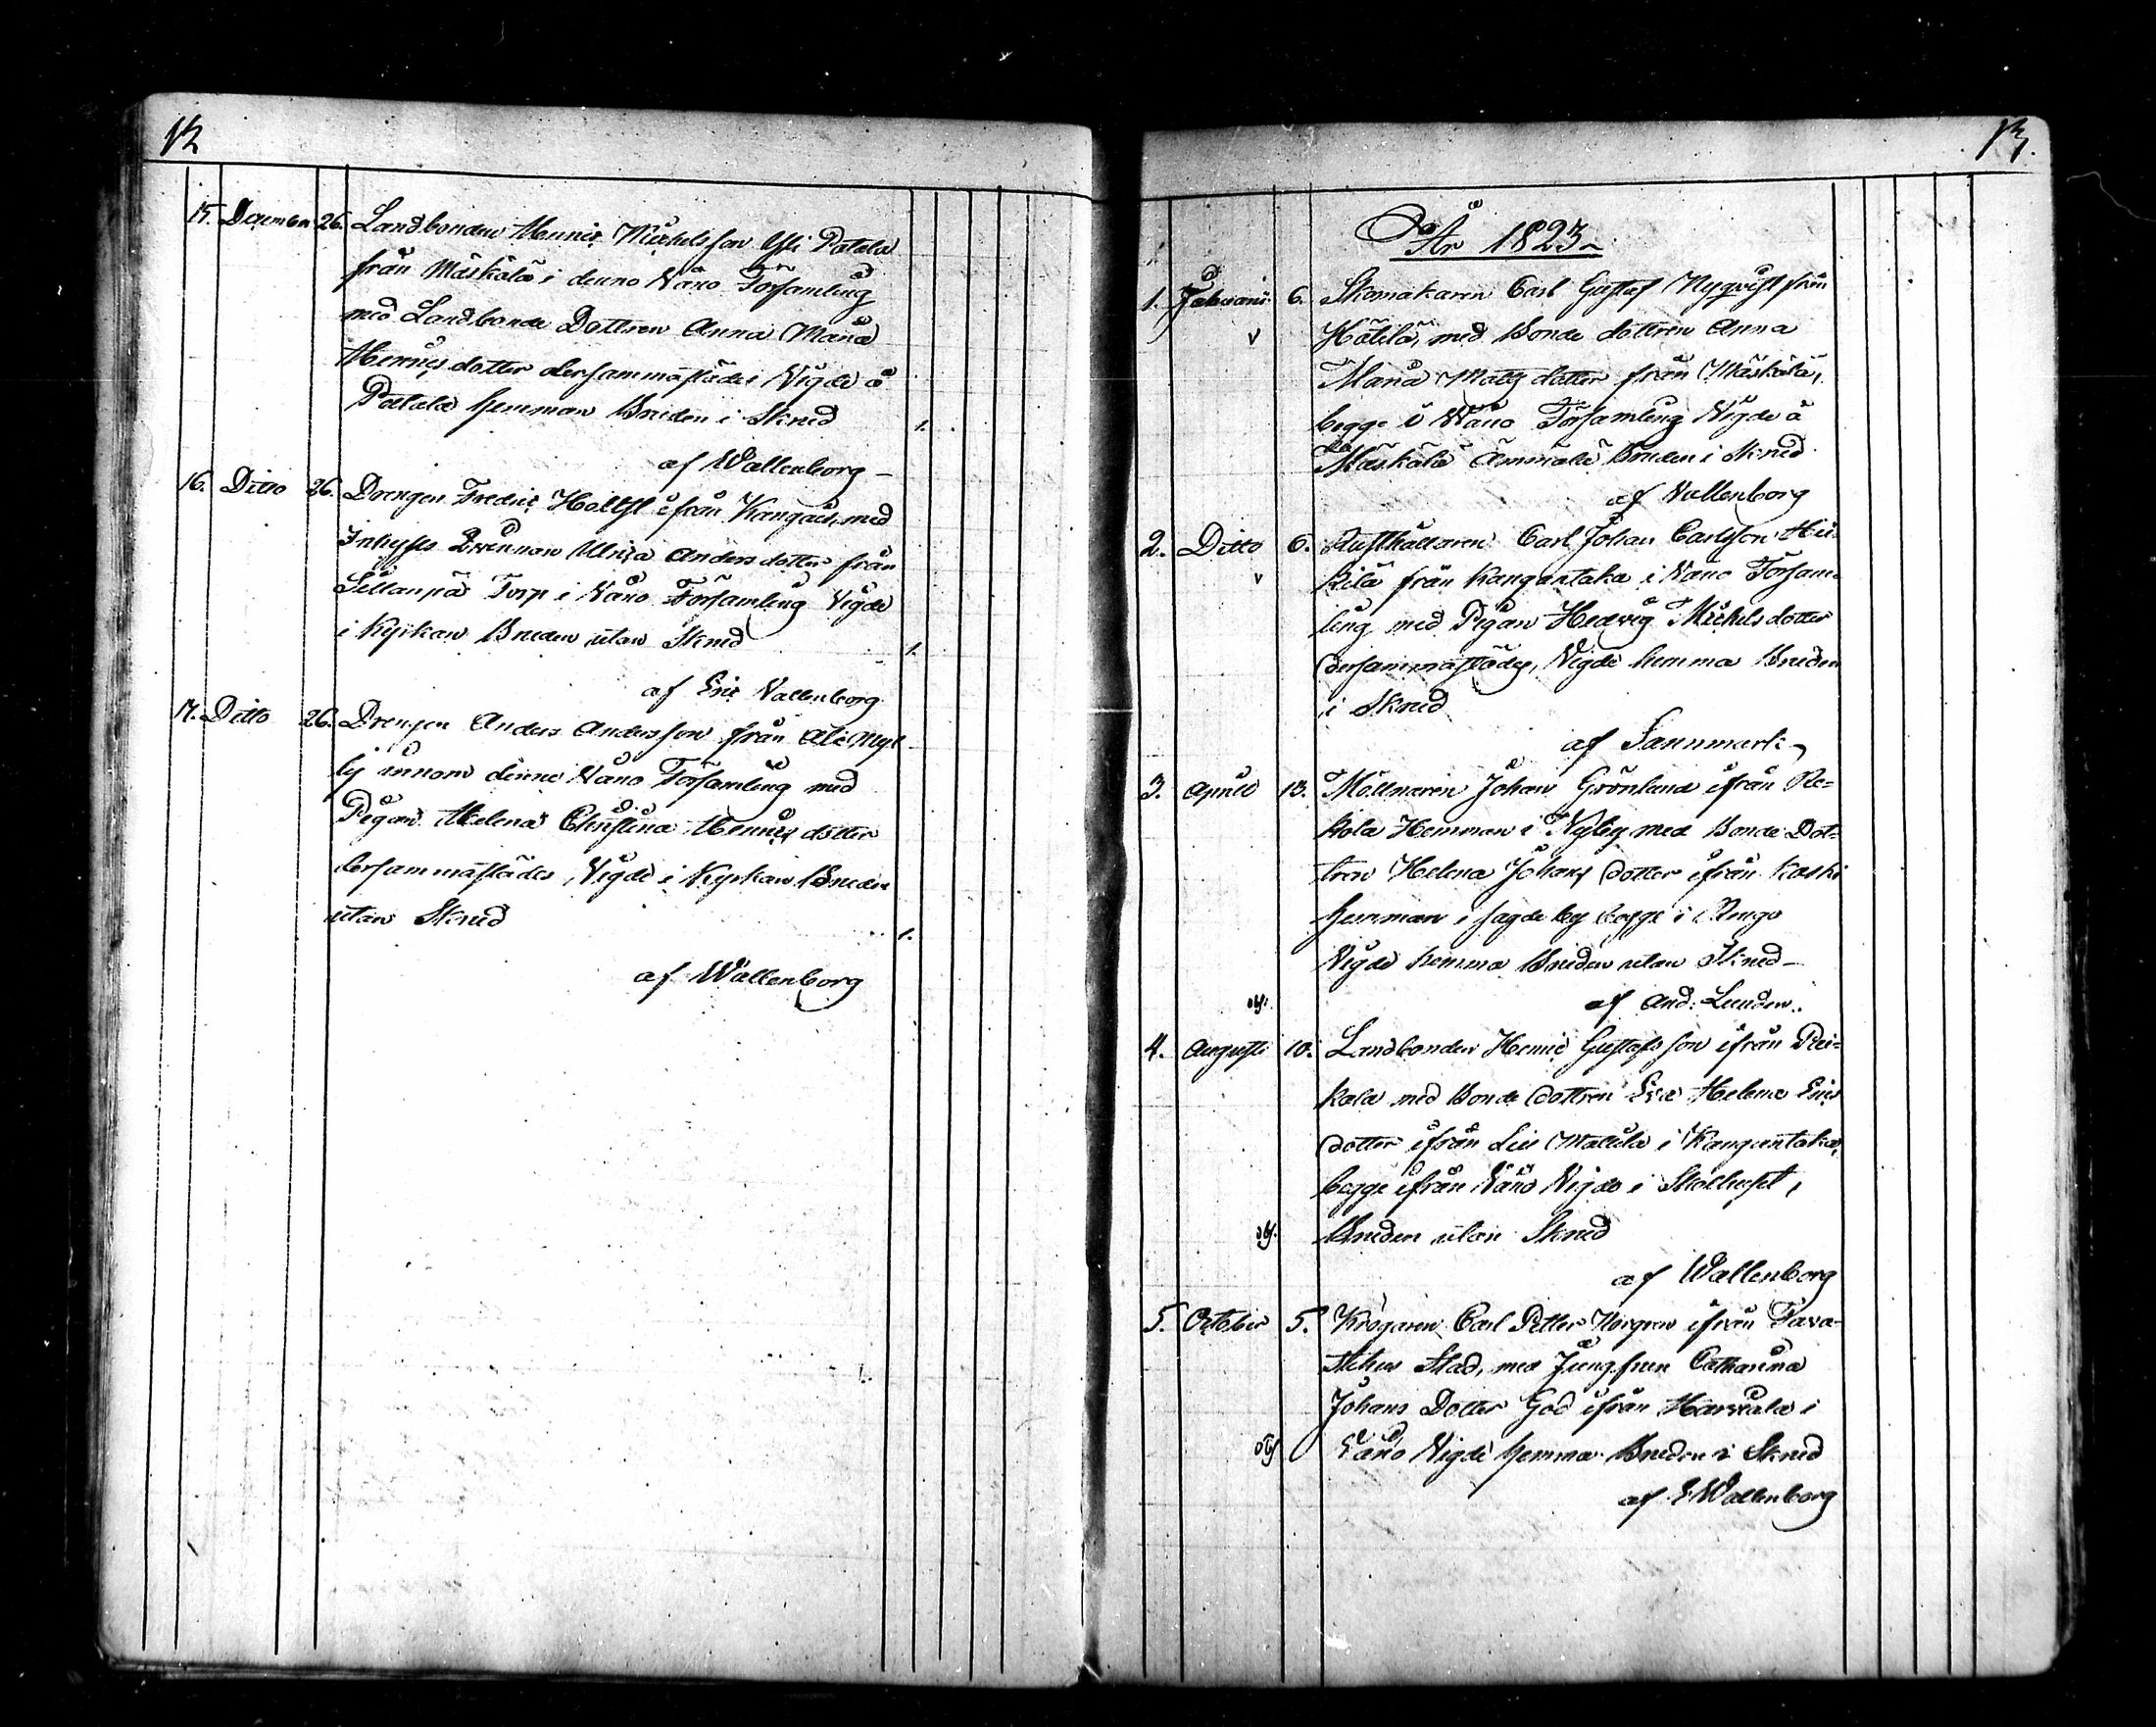 12
15. December 26. Landbonden Henric Michelsson Yli Patala
från Mäskälä i denne Wåno Församling
med Landbonde Dottren Anna Maria
Henrics dotter dersammastädes Vigde å
Patala hemman Bruden i Skrud
1.
af Wallenborg
16. Ditto 26. Drengen Fredric Holtst ifrån Kangais, med
Inhyses Qvinnan Ulrica Anders dotter från
Sillanpä Torp i Wåno Församling Vigde
i Kyrkan Bruden utan Skrud
1.
af Eric Wallenborg
17. Ditto 26. Drengen Anders Andersson från Ali Myl
by innom denne Wåno Församling med
Pigan Helena Christina Henrics dotter
dersammastädes, Vigde i Kyrkan Bruden
utan Skrud
1.
af Wallenborg
13.
År 1823
1. Februarii 6. Skomakaren Carl Gustaf Nyqvist från
v Hätilä, med Bonde dottren Anna
Maria Matts dotter från Mäskälä,
begge i Wåno Församling Vigde å
Mäskälä Ämmälä Bruden i Skrud
af Wallenborg
2. Ditto 6. Rusthållaren Carl Johan Carlsson Hei-
v kilä från Kangantaka i Wåno Försam-
ling med Pigan Hedvig Michels dotter
dersammastädes, Vigde hemma Bruden
i Skrud
af Sannmark
3. Aprill 13. Möllnaren Johan Grönlund ifrån Re-
kola Hemman i Nyby med Bonde Dot-
tren Helena Johans dotter ifrån Kaski
hemman i sagde by begge i Rengo
Vigde hemma Bruden utan Skrud
obs: af And: Lunden.
4. Augusti 10. Landbonden Henric Gustafs son ifrån Pirt-
kola med Bonde dottren Eva Helena Erics
dotter ifrån Lill Mattila i Kangantaka,
begge ifrån Wåno Vigde i Skolhuset,
obs. Bruden utan Skrud
af Wallenborg
5. October 5. Krögaren Carl Petter Norgren ifrån Tava-
stehus Stad, med Jungfrun Catharina
Johans Dotter God ifrån Harviala i
obs Wåno Vigde hemma Bruden i Skrud
af E Wallenborg